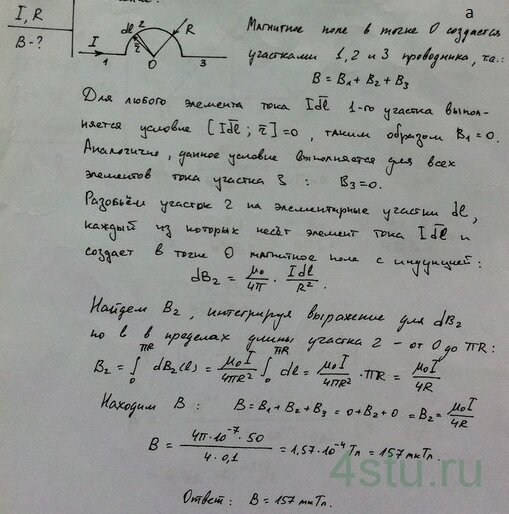 a
I, R
B-?
I
dl
2
R
r̄
1
O
3
Магнитное поле в точке O создаётся
участками 1, 2 и 3 проводника, т.е.:
B = B₁ + B₂ + B₃
Для любого элемента тока Idl̄ 1-го участка выпол-
няется условие [Idl̄ ; r̄] = 0, таким образом B₁ = 0.
Аналогично, данное условие выполняется для всех
элементов тока участка 3 : B₃ = 0.
Разобьём участок 2 на элементарные участки dl,
каждый из которых несёт элемент тока Idl̄ и
создаёт в точке O магнитное поле с индукцией:
dB₂ = μ₀/4π · Idl/R².
Найдем B₂, интегрируя выражение для dB₂
по l в пределах длины участка 2 - от 0 до πR:
B₂ = ∫₀^πR dB₂(l) = μ₀I/4πR² ∫₀^πR dl = μ₀I/4πR² · πR = μ₀I/4R
Находим B : B = B₁ + B₂ + B₃ = 0 + B₂ + 0 = B₂ = μ₀I/4R
B = 4π·10⁻⁷·50/4·0,1 = 1,57·10⁻⁴ Тл = 157 мкТл.
4stu.ru
Ответ: B = 157 мкТл.